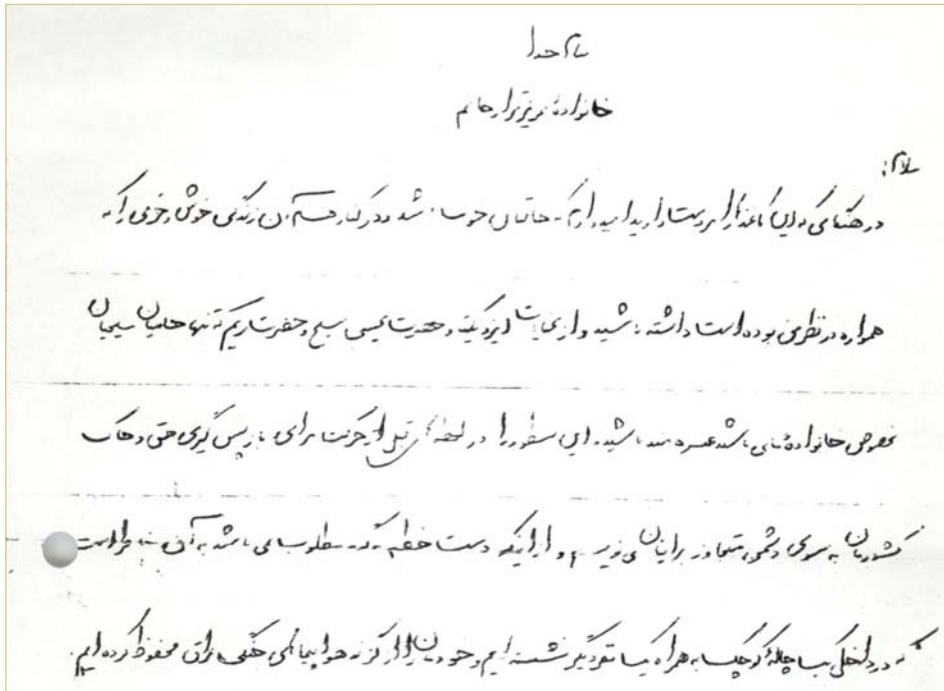 بنام خدا
خانواده عزیزتر از جانم
سلام:
در هنگامی که این کاغذ را در دست دارید امیدوارم که حالتان خوب باشد و در کنار هم آن زندگی خوش و خرمی را که
همواره در نظر من بوده است داشته باشید و از عنایات ایزد یکتا و حضرت عیسی مسیح و حضرت مریم که تنها حامیان مسیحیان
بخصوص خانواده ما می باشد بهره مند باشید. این سطور را در لحظه های قبل از حرکت برای باز پس گیری حق و خاک
کشورمان به سوی دشمن متجاوز برایتان می نویسم و از اینکه دست خطم بد و نامطلوب می باشد به آن خاطر است
که در داخل یک چاله کوچک به همراه یک نفر دیگر نشسته ایم و خودمان را از گزند هواپیماهای جنگی عراق محفوظ کرده ایم.